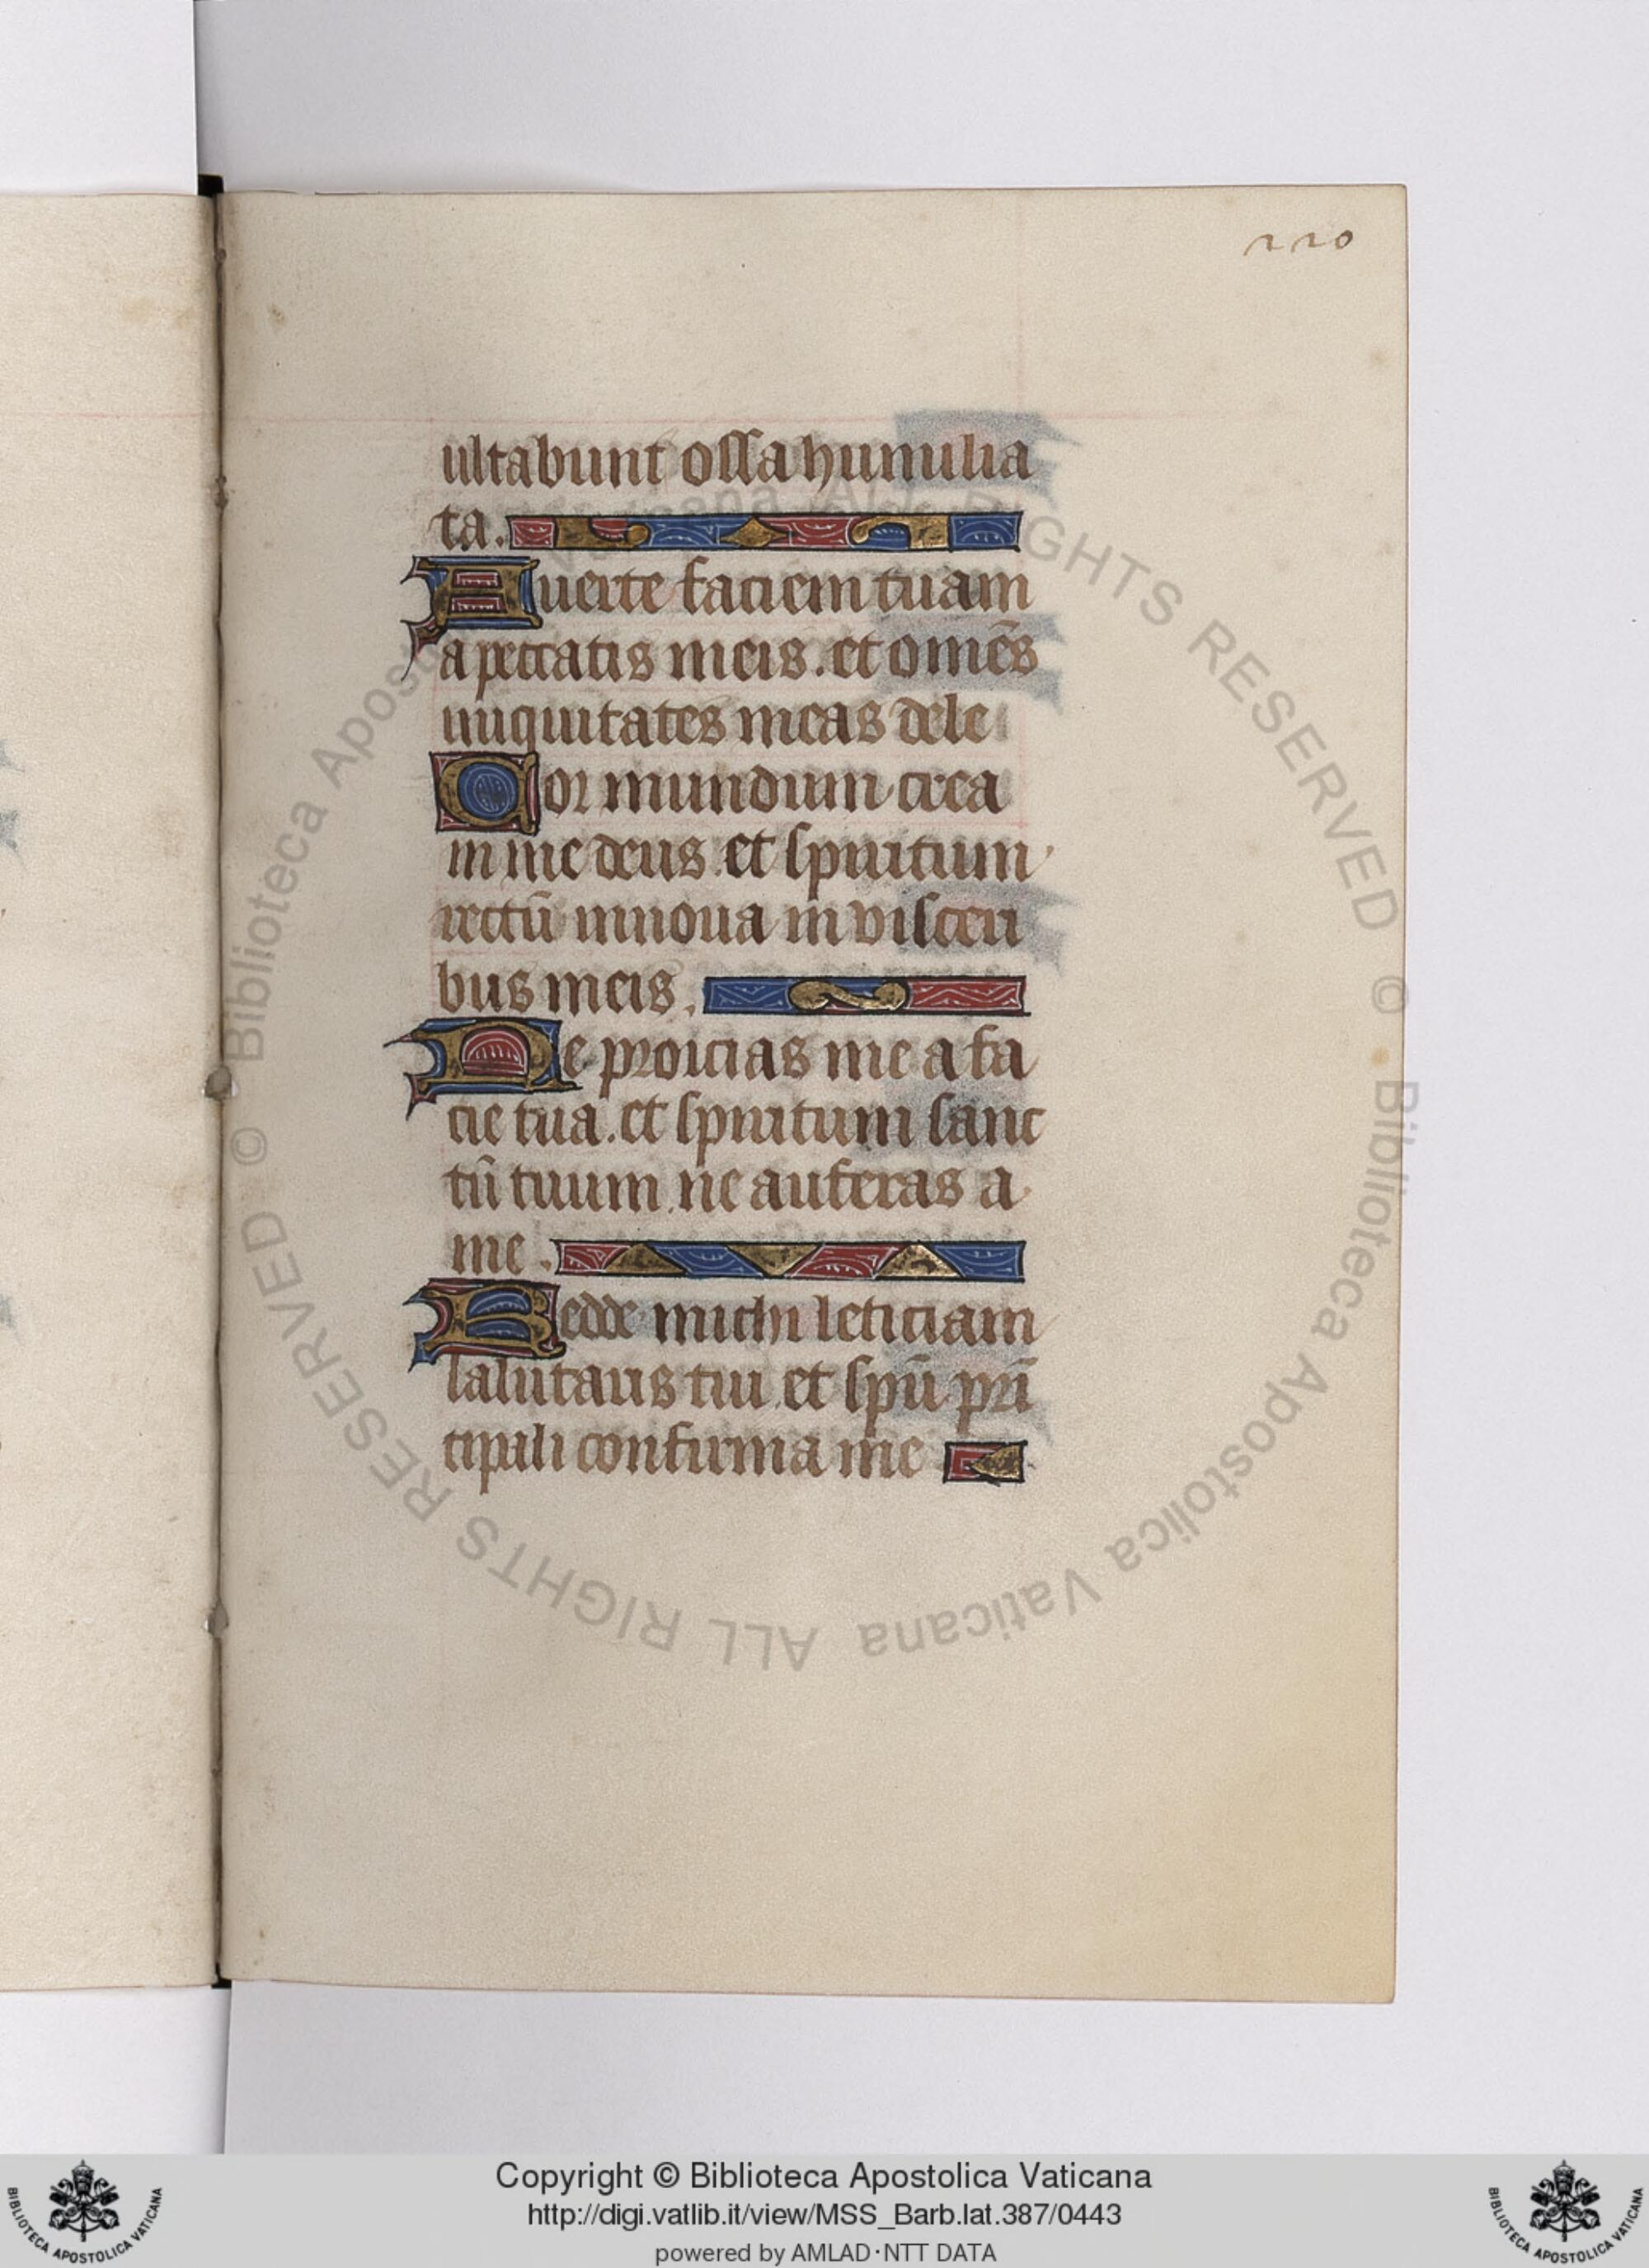 220
ultabunt ossa humilia
ta.
Auerte faciem tuam
a peccatis meis. et om̃es
iniquitates meas dele
Cor mundum crea
in me deus. et spiritum
rectū innoua in visceri
bus meis.
Ne proicias me a fa
cie tua. et spiritum sanc
tū tuum ne auferas a
me.
Redde michi leticiam
salutaris tui et spū prī
cipali confirma me
© Biblioteca Apostolica Vaticana ALL RIGHTS RESERVED © Biblioteca Apostolica Vaticana ALL RIGHTS RESERVED
Copyright © Biblioteca Apostolica Vaticana
http://digi.vatlib.it/view/MSS_Barb.lat.387/0443
powered by AMLAD·NTT DATA
BIBLIOTECA APOSTOLICA VATICANA
BIBLIOTECA APOSTOLICA VATICANA